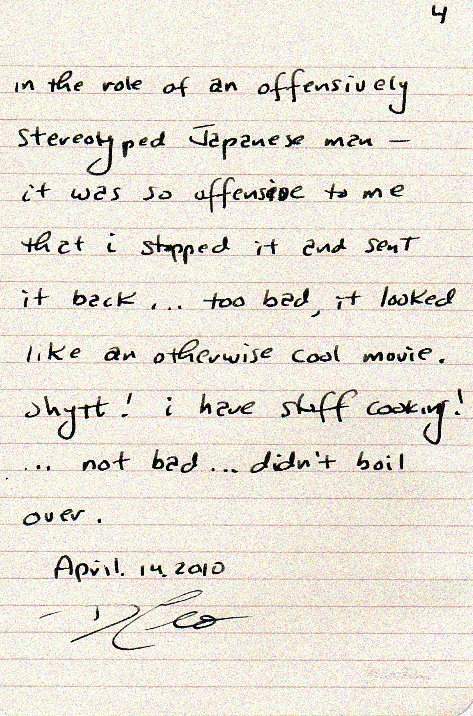 4
in the role of an offensively
stereotyped Japanese man —
it was so offensive to me
that i stopped it and sent
it back... too bad, it looked
like an otherwise cool movie.
shytt! i have stuff cooking!
... not bad... didn't boil
over.
April. 14. 2010